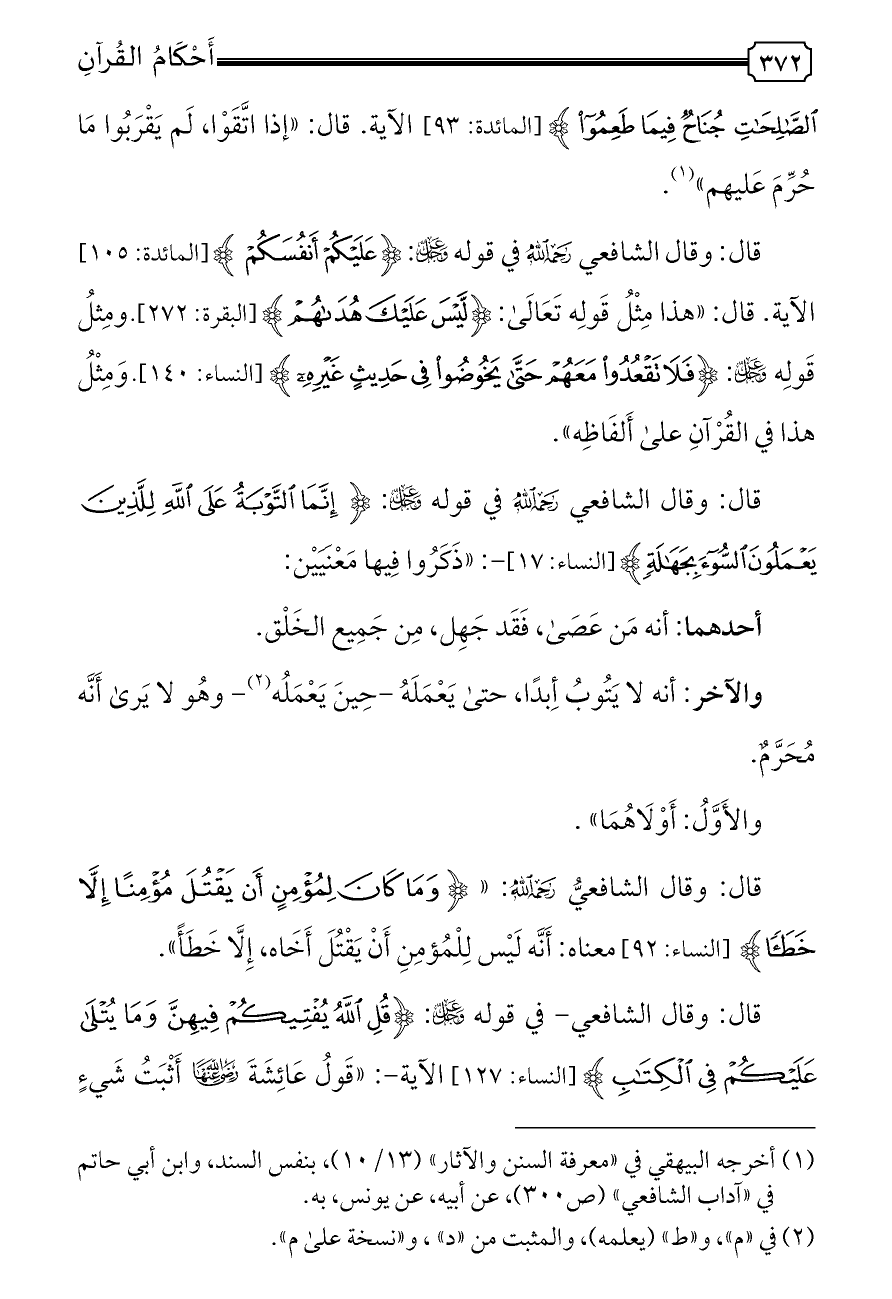 ٣٧٢ أَحْكَامُ القُرآنِ
ٱلصَّٰلِحَٰتِ جُنَاحٌ فِيمَا طَعِمُوٓا۟ ﴾ [المائدة: ٩٣] الآية. قال: «إذا اتَّقَوْا، لَم يَقْرَبُوا مَا
حُرِّمَ عَليهم»(١).
قال: وقال الشافعي رَحِمَهُ اللَّهُ في قوله عَزَّ وَجَلَّ: ﴿عَلَيْكُمْ أَنفُسَكُمْ ﴾ [المائدة: ١٠٥]
الآية. قال: «هذا مِثْلُ قَولِه تَعَالَىٰ: ﴿لَّيْسَ عَلَيْكَ هُدَىٰهُمْ ﴾ [البقرة: ٢٧٢]. ومِثلُ
قَولِه عَزَّ وَجَلَّ: ﴿فَلَا تَقْعُدُوا۟ مَعَهُمْ حَتَّىٰ يَخُوضُوا۟ فِى حَدِيثٍ غَيْرِهِۦٓ ﴾ [النساء: ١٤٠]. وَمِثْلُ
هذا في القُرْآنِ علىٰ أَلفَاظِه».
قال: وقال الشافعي رَحِمَهُ اللَّهُ في قوله عَزَّ وَجَلَّ: ﴿ إِنَّمَا ٱلتَّوْبَةُ عَلَى ٱللَّهِ لِلَّذِينَ
يَعْمَلُونَ ٱلسُّوٓءَ بِجَهَٰلَةٍ﴾ [النساء: ١٧]-: «ذَكَرُوا فِيها مَعْنَيَيْن:
أحدهما: أنه مَن عَصَىٰ، فَقَد جَهِل، مِن جَمِيع الخَلْق.
والآخر: أنه لا يَتُوبُ أبدًا، حتىٰ يَعْمَلَهُ -حِينَ يَعْمَلُه(٢)- وهُو لا يَرىٰ أنَّه
مُحَرَّمٌ.
والأَوَّلُ: أَوْلَاهُمَا» .
قال: وقال الشافعيُّ رَحِمَهُ اللَّهُ: « ﴿ وَمَا كَانَ لِمُؤْمِنٍ أَن يَقْتُلَ مُؤْمِنًا إِلَّا
خَطَـًٔا﴾ [النساء: ٩٢] معناه: أنَّه لَيْس لِلْمُؤمنِ أَنْ يَقْتُلَ أَخَاه، إِلَّا خَطَأً».
قال: وقال الشافعي- في قوله عَزَّ وَجَلَّ: ﴿قُلِ ٱللَّهُ يُفْتِيكُمْ فِيهِنَّ وَمَا يُتْلَىٰ
عَلَيْكُمْ فِى ٱلْكِتَٰبِ ﴾ [النساء: ١٢٧] الآية-: «قَولُ عَائِشَةَ رَضِيَ اللَّهُ عَنْهَا أَثْبَتُ شَيءٍ
(١) أخرجه البيهقي في «معرفة السنن والآثار» (١٣/ ١٠)، بنفس السند، وابن أبي حاتم
في «آداب الشافعي» (ص٣٠٠)، عن أبيه، عن يونس، به.
(٢) في «م»، و«ط» (يعلمه)، والمثبت من «د» ، و«نسخة علىٰ م».